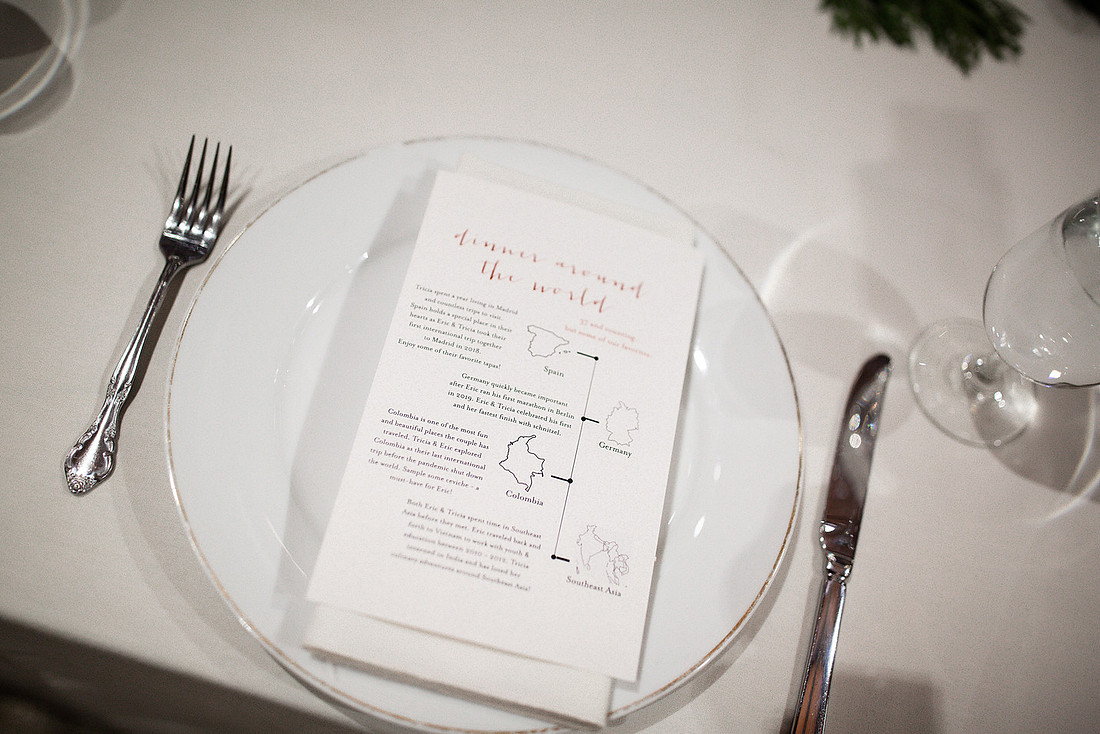 dinner around
the world
37 and counting
but some of our favorites
Tricia spent a year living in Madrid
and countless trips to visit.
Spain holds a special place in their
hearts as Eric & Tricia took their
first international trip together
to Madrid in 2018.
Enjoy some of their favorite tapas!
Spain
Germany quickly became important
after Eric ran his first marathon in Berlin
in 2019. Eric & Tricia celebrated his first
and her fastest finish with schnitzel.
Germany
Colombia is one of the most fun
and beautiful places the couple has
traveled. Tricia & Eric explored
Colombia as their last international
trip before the pandemic shut down
the world. Sample some ceviche - a
must-have for Eric!
Colombia
Both Eric & Tricia spent time in Southeast
Asia before they met. Eric traveled back and
forth to Vietnam to work with youth &
education between 2010 - 2012. Tricia
interned in India and has loved her
culinary adventures around Southeast Asia!
Southeast Asia